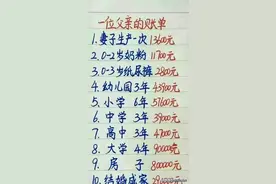 一位父亲的账单
1.妻子生产一次13600元
2.0-2岁奶粉11700元
3.0-3岁纸尿裤2800元
4.幼儿园3年45900元
5.小学 6年57600元
6.中学 3年39000元
7.高中 3年47000元
8.大学 4年90000元
9.房 子 800000元
10.结婚成家